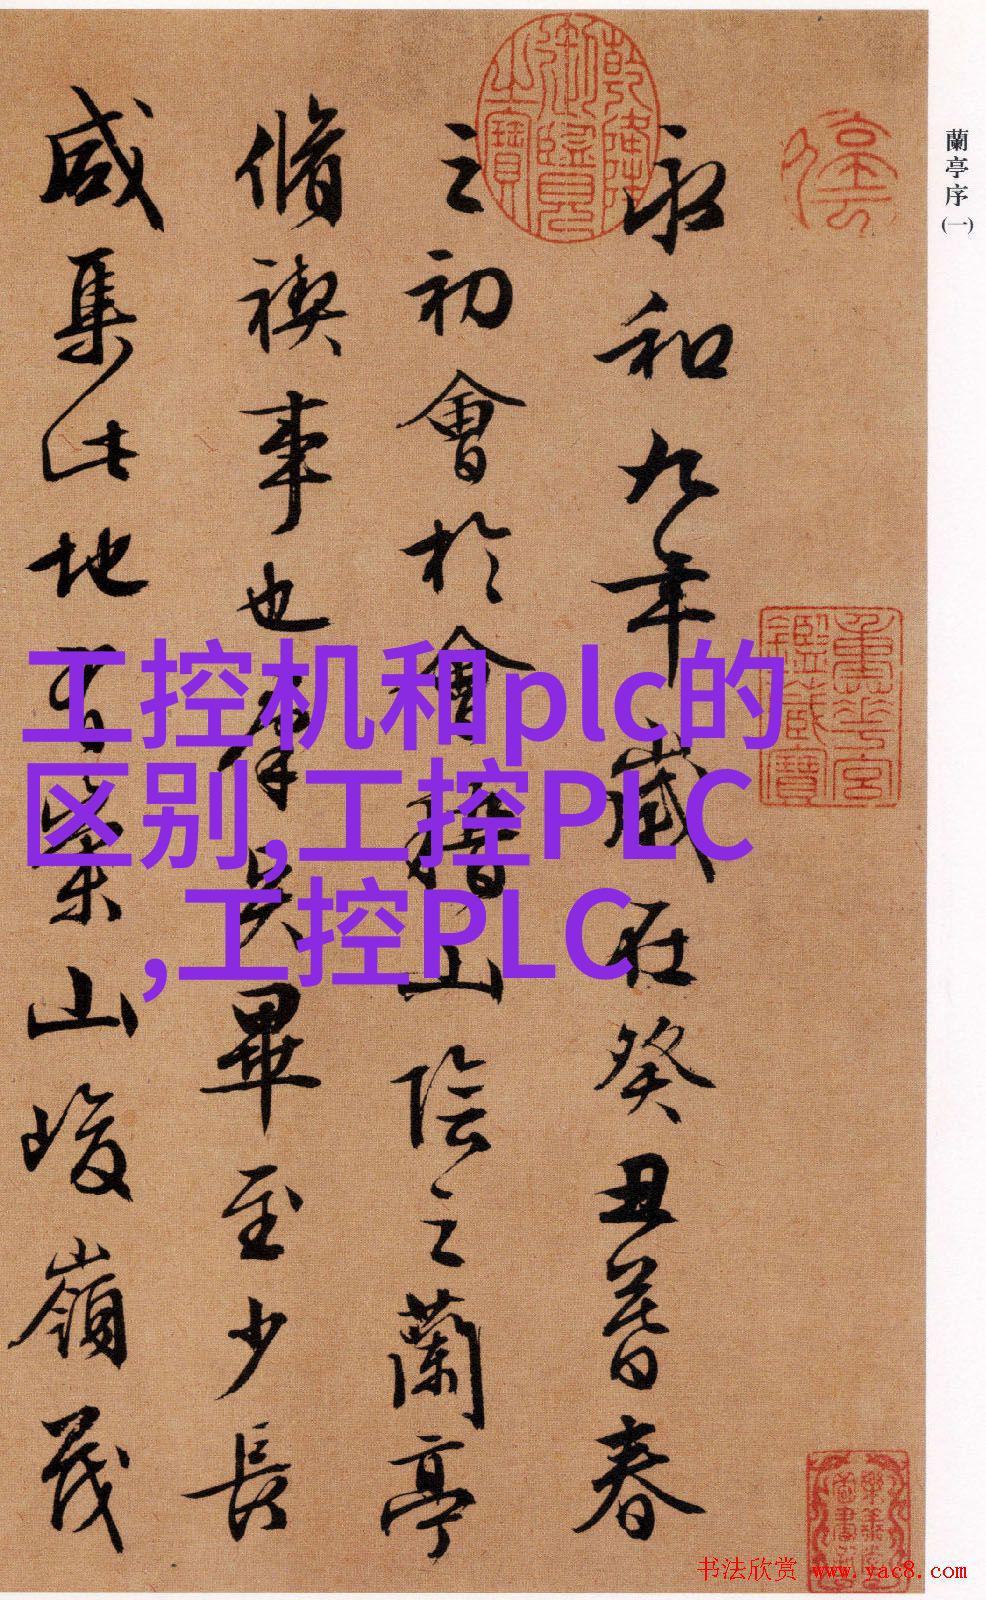 蘭亭序(一)
永和九年歲在癸丑暮春
之初會於會稽山陰之蘭亭
脩禊事也羣賢畢至少長
咸集此地有崇山峻嶺茂
乾隆御覽之寶
工控机和plc的
区别,工控PLC
,工控PLC
书法欣赏 www.yac8.com